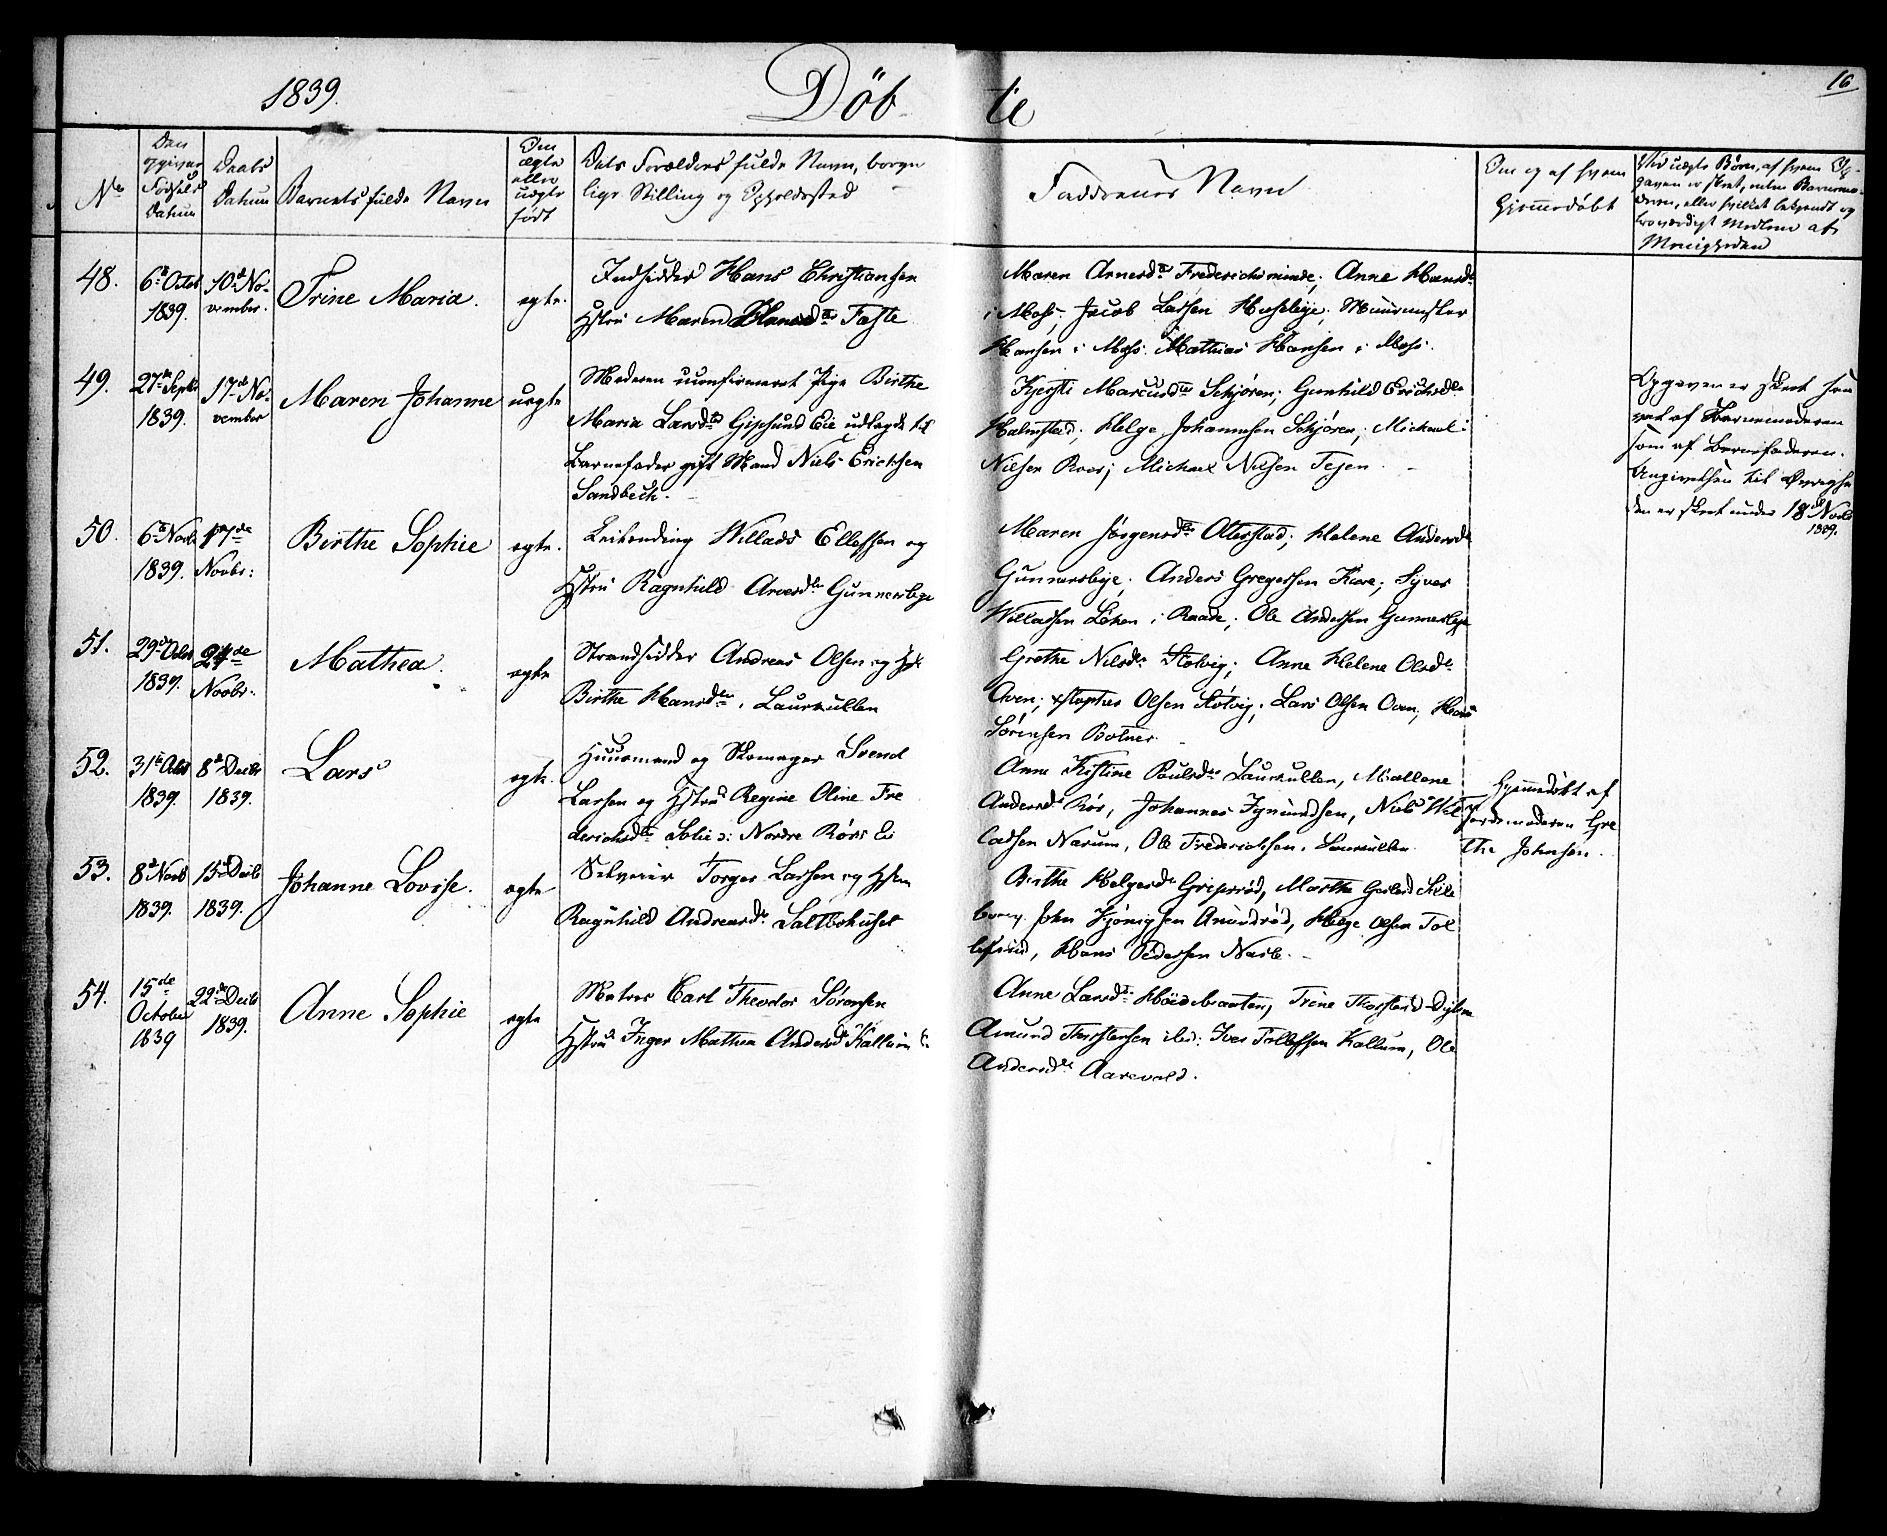 1839.
Döb te
16
No
Den opgivne Fødsels Datum
Daabs Datum
Barnets fulde Navn
Om ægte eller uægte født
Dets Forældres fulde Navn, borger
lige Stilling og Opholdssted
Faddernes Navn
Om og af hvem
Hjemmedøbt
Ved uægte Børn, af hvem Op-
gaven er skeet, enten Barnemo-
deren, eller hvilket bekjendt og
troværdigt Medlem af
Menigheden
48.
6te Octbr
1839.
10de No-
vember.
Trine Maria.
egte.
Indsidder Hans Christiansen
Hstru Maren Hansdtr Faste
Maren Arnesdtr Frederichsminde; Anne Hansdtr
i Moss; Jacob Larsen Huseleye; Muurmester
Hansen i Moss. Mathias Hansen i Moss.
49.
27de Septbr
1839.
17de No-
vember
Maren Johanne
uegte
Moderen uconfirmeret Pige Birthe
Maria Larsdtr Gipsund Eie udlagde til
Barnefader gift Mand Niels Erichsen
Sandbech.
Kjersti Marcusdtr Schjören; Gunhild Erichsdtr
Halmstad; Helge Johannesen Schjören; Michael
Nilsen Roer; Michael Nilsen Tejen.
Opgaven er skeet saa
vel af Barnemoderen
som af Barnefaderen.
Angivelsen til Øvrighe
den er skeet under 18de Novbr
1839.
50.
6te Novbr
1839.
17de
Novbr:
Birthe Sophie
egte.
Leilending Willads Ellefsen og
Hstru Ragnhild Arnesdtr Gunnersbye
Maren Jörgensdtr Oterstad; Helene Andersdtr
Gunnersbye; Anders Gregersen Kure; Syver
Willadsen Löken i Raade; Ole Andersen Gunnersbye
51.
29de Octbr
1839.
24de
Novbr:
Mathea.
egte
Strandsidder Andreas Olsen og Hst.
Birthe Hansdtr, Laurkullen
Grethe Nilsdtr Stolvig; Anne Helene Olsdtr
Oven; Xstopher Olsen Stolvig; Lars Olsen Oven, Hans
Sörensen Botner.
52.
31te Octbr
1839.
8de Decbr
1839.
Lars
egte.
Huusmand og Skomager Svend
Larsen og Hstru Regine Oline Fre
derichsdtr Solie i Nordre Rörs Ei
Anne Kistine Poulsdtr Laurkullen, Mallene
Andersdtr Rör, Johannes Igmundsen, Niels Wil
ladsen Narum, Ole Frederichsen. Laurkullen
Hjemmedøbt af
Jordemoderen Gre
the Johnsen.
53.
8de Novbr
1839.
15de Decbr
1839.
Johanne Lovise.
egte
Selveier Torger Larsen og Hstru
Ragnhild Andreasdtr Saltbohuset
Birthe Helgesdtr Gripsröd, Marthe
borg. John Amundröd, Helge Olsen Tol
lefsrud, Hans Pedersen
54.
15de
October
1839
22de Decbr
1839.
Anne Sophie
egte
Matros Carl Theodor Sörensen
Hstru Inger Mathea Andersdtr Kallum
Anne Larsdtr Trine
Amund Thorstensen ibid: Iver Tollefsen Kallum, Ole
Andersdtr Aarevold.